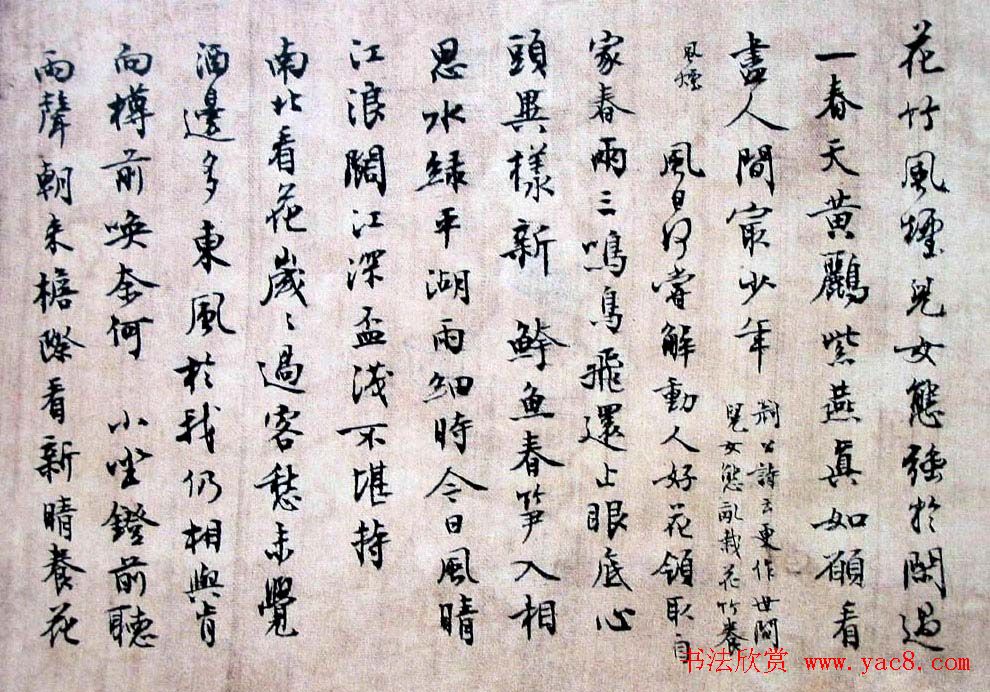 花竹風煙兒女態強於閑過
一春天黃鸝紫燕真如願看
盡人間㝡少年 荊公詩云更作世間
兒女態亂栽花竹養
風煙 風日何嘗解動人好花領取自
家春兩三鳴鳥飛還止眼底心
頭異樣新 魚春笋入相
思水綠平湖雨細時今日風晴
江浪闊江深盃淺不堪持
南北看花歲〻過客愁未覺
酒邊多東風於我仍相與肯
向樽前喚奈何 小坐鐙前聽
雨聲朝來檐際看新晴養花
书法欣赏 www.yac8.com